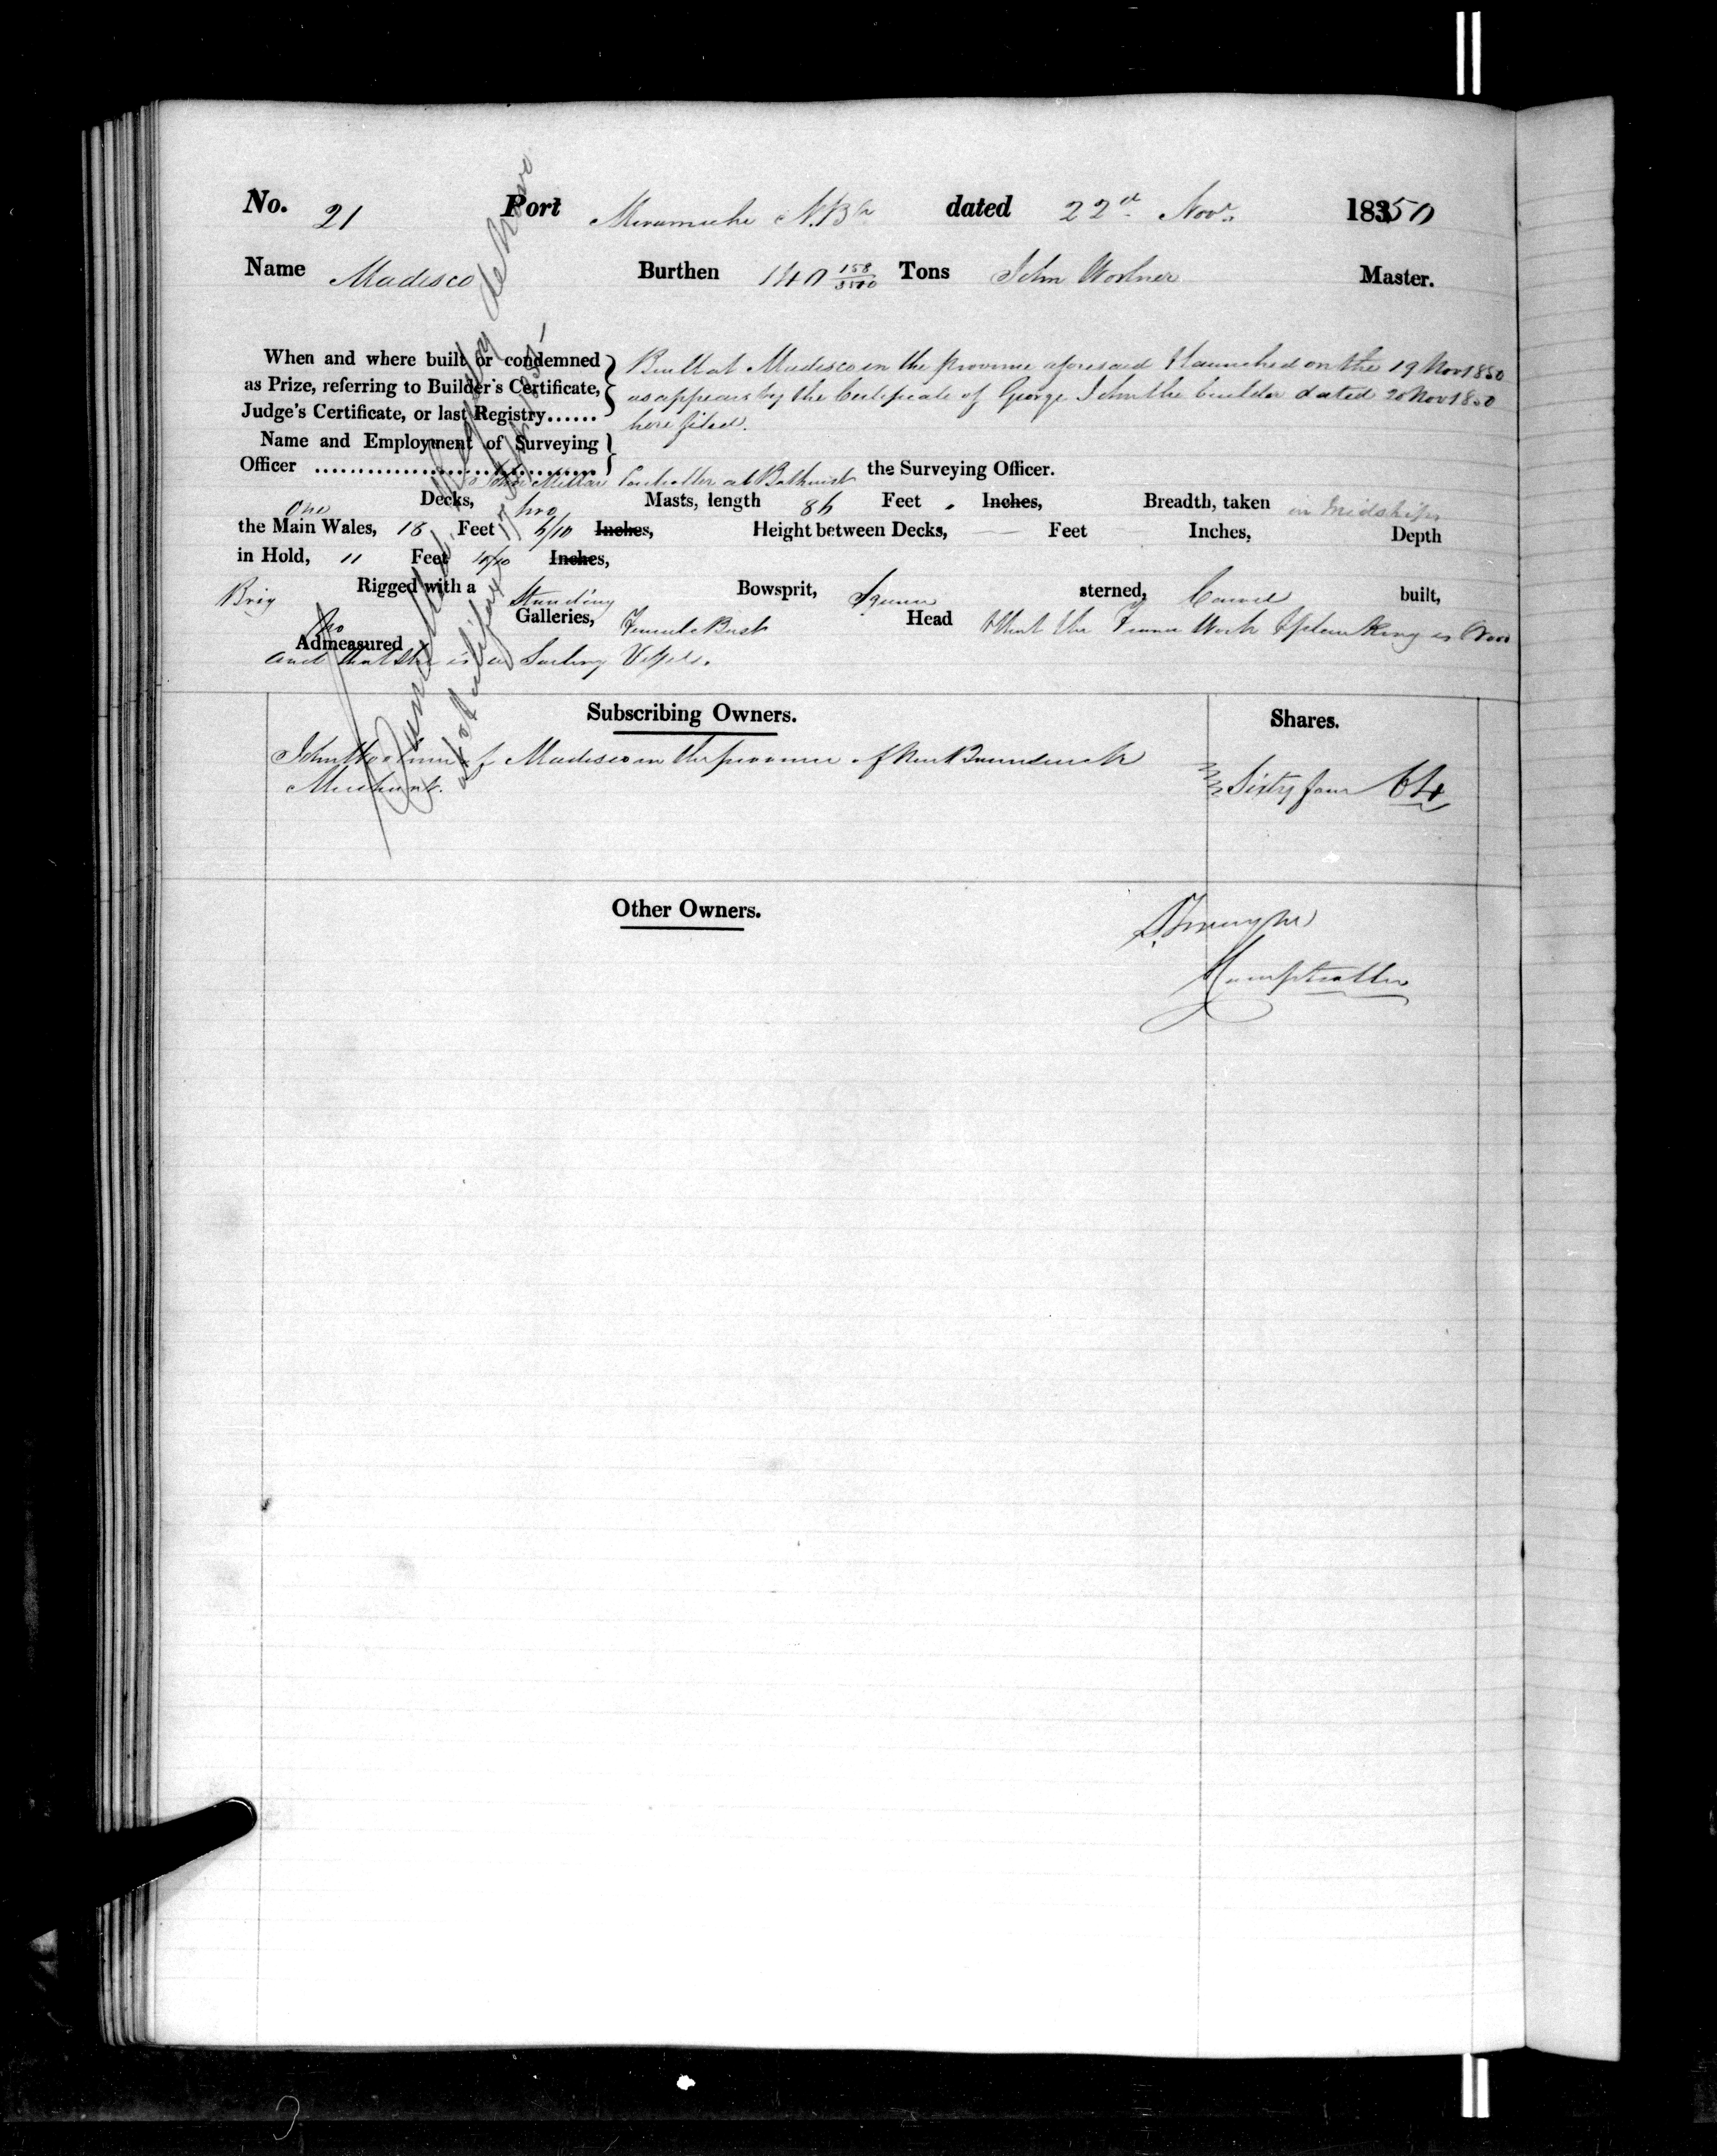 No. 21 Port Miramichi N.Bk dated 22d Novr. 18350
Name Madisco Burthen 140 158/3500 Tons John Woolner Master.
When and where built or condemned
as Prize, referring to Builder's Certificate,
Judge's Certificate, or last Registry......
Built at Madisco in the Province aforesaid & launched on the 19 Nov 1850
as appears by the Certificate of George Smith the builder dated 20 Nov 1850
here filed.
Name and Employment of Surveying
Officer ................................ John Millar Controller at Bathurst the Surveying Officer.
one Decks, two Masts, length 86 Feet . Inches, Breadth, taken in Midships
the Main Wales, 18 Feet 6/10 Inches, Height between Decks, — Feet Inches, Depth
in Hold, 11 Feet 10/10 Inches,
Brig Rigged with a Standing Bowsprit, Square sterned, Carvel built,
No Galleries, Female Bust Head & that the Frame Work & planking is Wood
Admeasured
and that she is a Sailing Vessel.
Cancelled Registry de Novo
at Halifax
Subscribing Owners.
Shares.
John Woolner of Madisco in the province of New Brunswick
Merchant.
Sixty four 64
Other Owners.
Comptroller